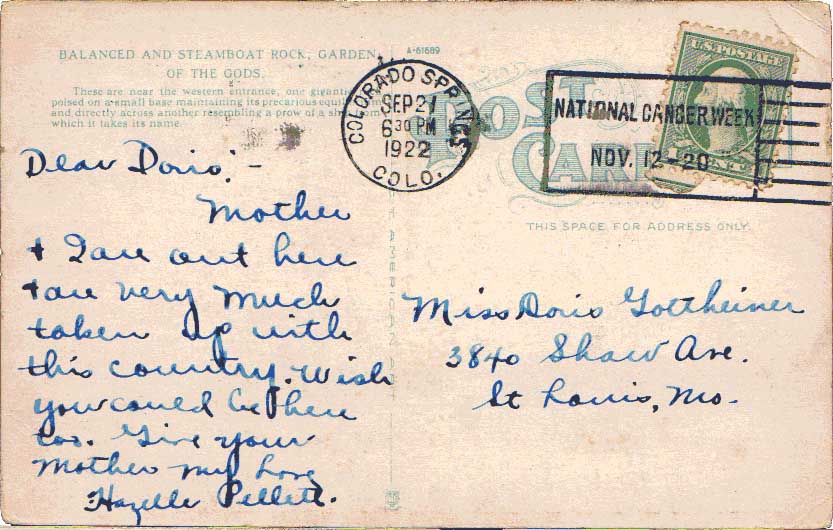 BALANCED AND STEAMBOAT ROCK, GARDEN
OF THE GODS.
These are near the western entrance, one
poised on a small base maintaining its precarious
and directly across another resembling a prow of a
which it takes its name.
Dear Doris:-
Mother
+ I are out here
+ are very much
taken up with
this country. Wish
you could be here
too. Give your
Mother my love
Hazelle Pellett.
A-61689
COLORADO SPRINGS
SEP 21
6 30 PM
1922
COLO.
NATIONAL CANCER WEEK
NOV. 12-20
U.S. POSTAGE
CENT
POST
CARD
THIS SPACE FOR ADDRESS ONLY.
Miss Doris Gottheiner
3840 Shaw Ave.
St Louis, Mo.